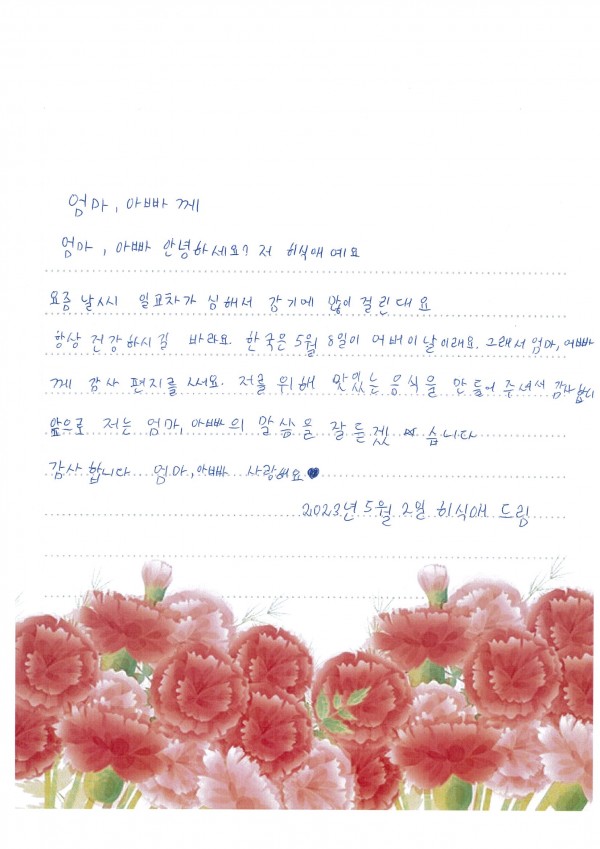 엄마, 아빠 께
엄마, 아빠 안녕하세요? 저 히식애 예요
요즘 날시시 일교차가 심해서 감기에 많이 걸린대요
항상 건강하시길 바라요. 한국은 5월 8일이 어버이날이래요. 그래서 엄마, 아빠
께 감사 편지를 써요. 저를 위해 맛있는 음식을 만들어 주셔서 감사합니
앞으로 저는 엄마, 아빠의 말씀을 잘 듣겠 습니다
감사합니다 엄마, 아빠 사랑해요♥
2023년 5월 2일 히식애 드림